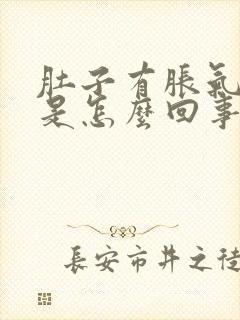 肚子有脹氣
是怎麼回事
長安市井之徒